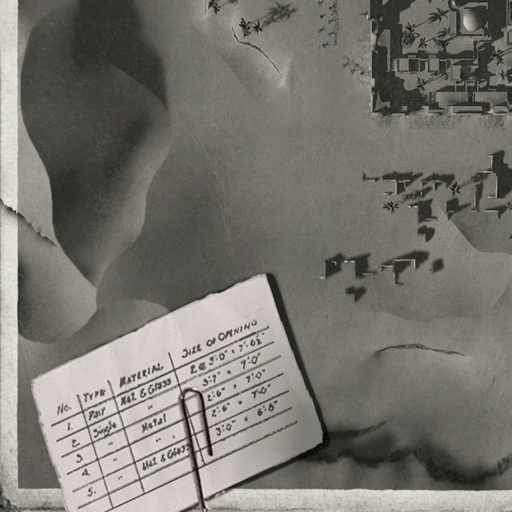 No. TYPE MATERIAL SIZE OF OPENING
1. Pair Mel & Glass 2 @ 3'0" × 7'0½"
2. Single " 3'7" × 7'0"
3 " Metal 2'6" × 7'0"
4. " " 2'6" × 7'0"
5. " Mel & Glass 3'0" × 6'8"